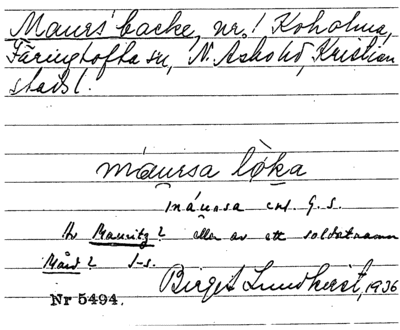 Maurs' backe, nr. 1 Koholma,
Färingtofta sn, N. Åsbo hd, Kristian
stads l.
máursa lo̊ka
máursa enl. G. S.
tr Mauritz? eller av ett soldatnamn
Mård? S-s.
Birgit Lundkvist, 1936
Nr 5494.